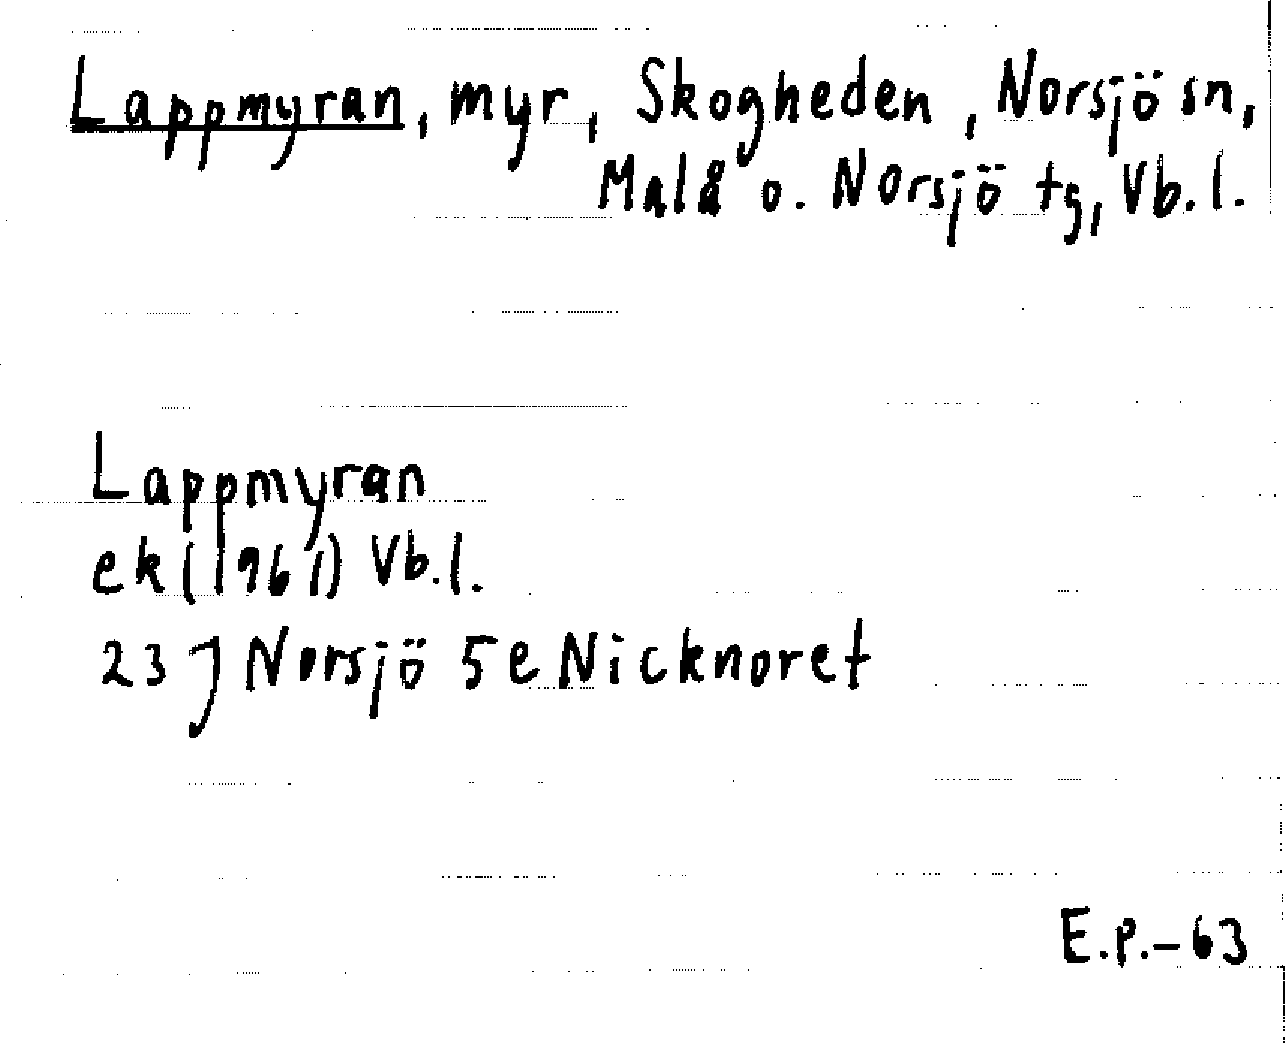 Lappmyran, myr, Skogheden, Norsjö sn,
Malå o. Norsjö tg, Vb.l.
Lappmyran
ek (1961) Vb.l.
23 J Norsjö 5e Nicknoret
E.P.-63